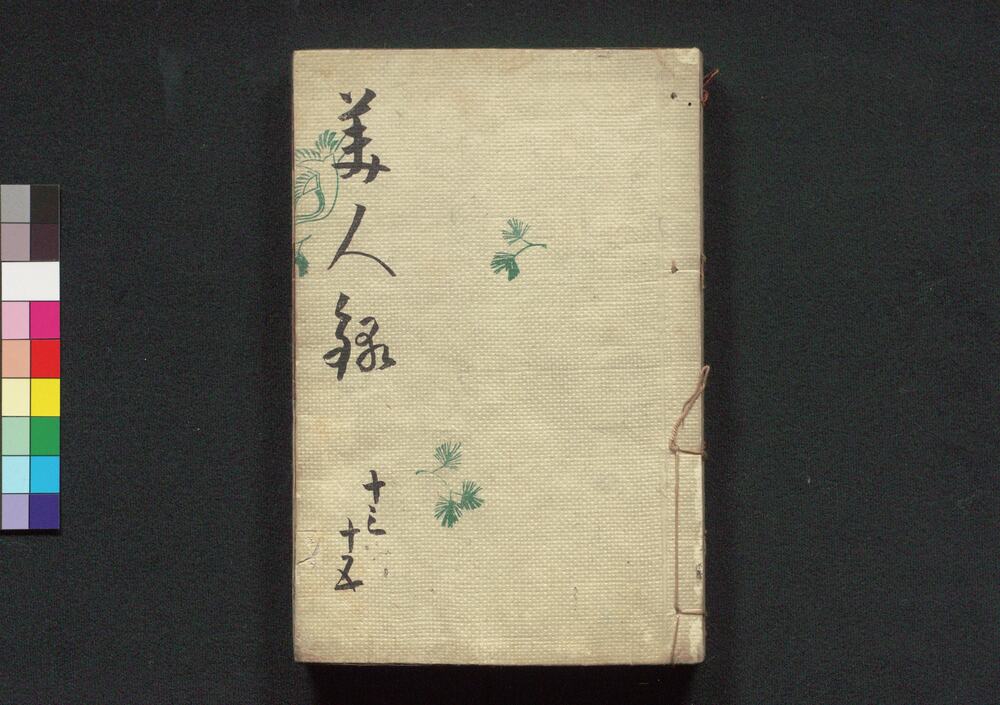 美人録
十三
十五